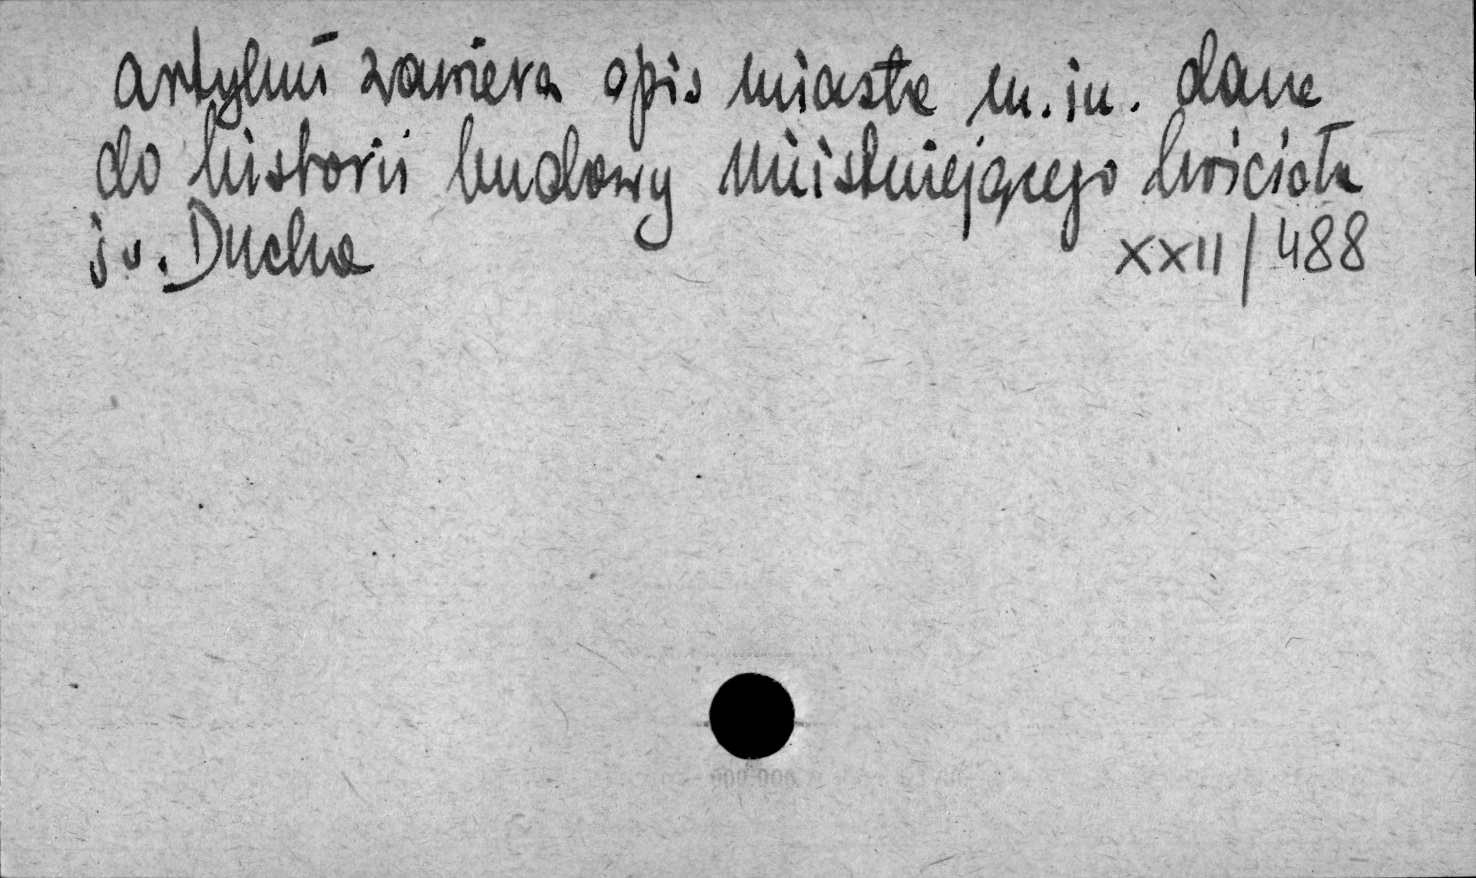 artykuł zawiera opis miasta m.in. dane
do historii budowy nieistniejącego kościoła
św. Ducha XXII/488